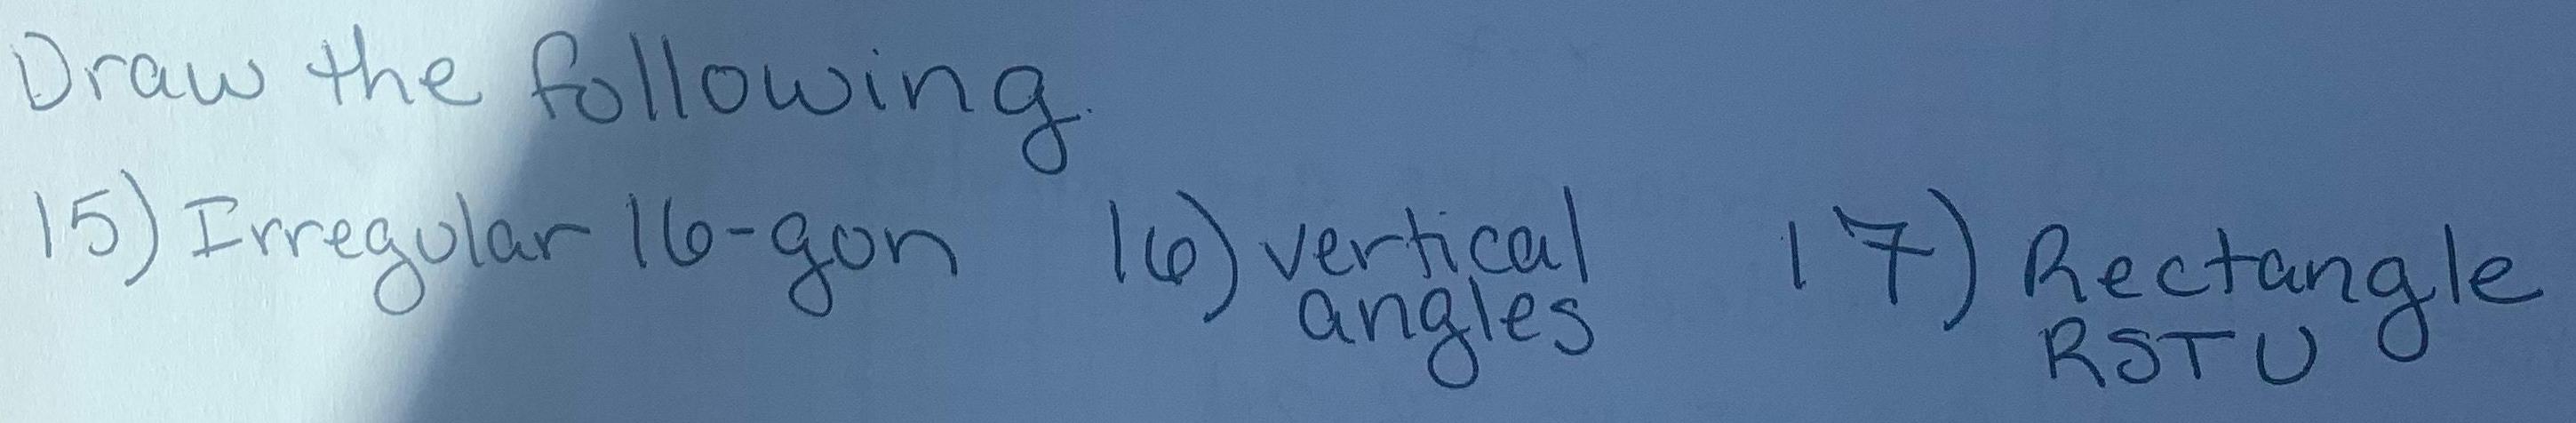 Draw the following.
15) Irregular 16-gon 16) vertical angles 17) Rectangle RSTU